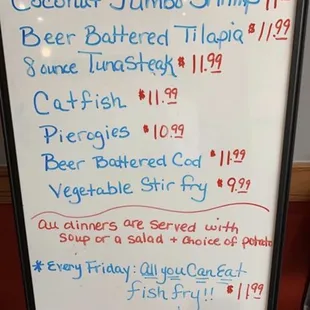 Coconut Jumbo Shrimp
Beer Battered Tilapia $11.99
8 ounce Tuna Steak $11.99
Catfish $11.99
Pierogies $10.99
Beer Battered Cod $11.99
Vegetable Stir Fry $9.99
All dinners are served with
soup or a salad + choice of potato
*Every Friday: All you Can Eat
fish fry!! $11.99